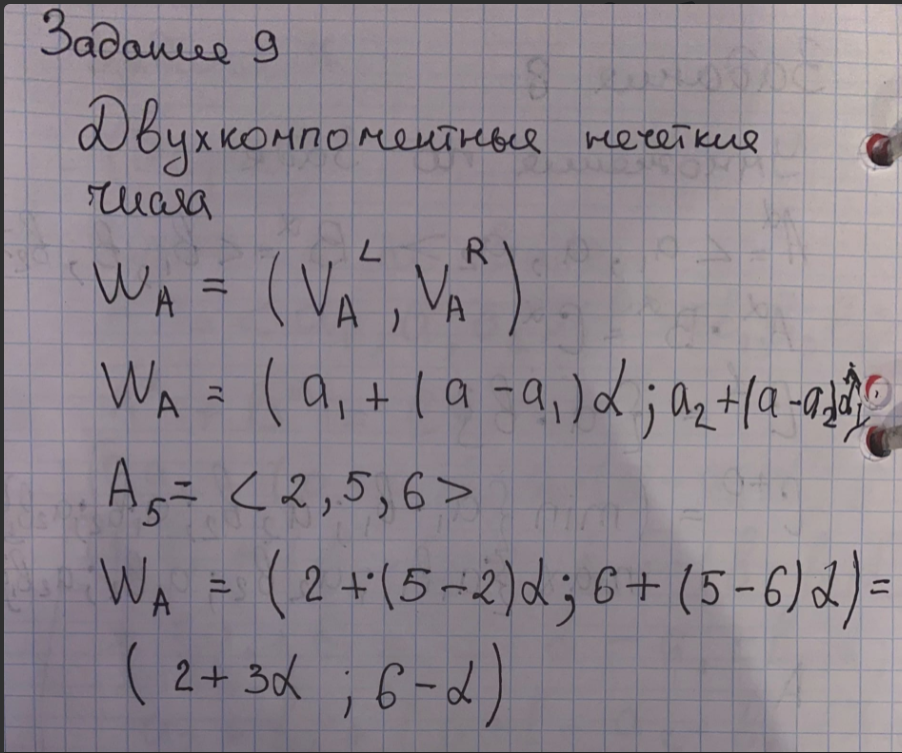 Задание 9
Двухкомпонентные нечеткие
числа
W_A = (V_A^L, V_A^R)
W_A = (a₁ + (a - a₁)α; a₂ + (a - a₂)α)
A₅ = <2, 5, 6>
W_A = (2 + (5 - 2)α; 6 + (5 - 6)α) =
(2 + 3α ; 6 - α)